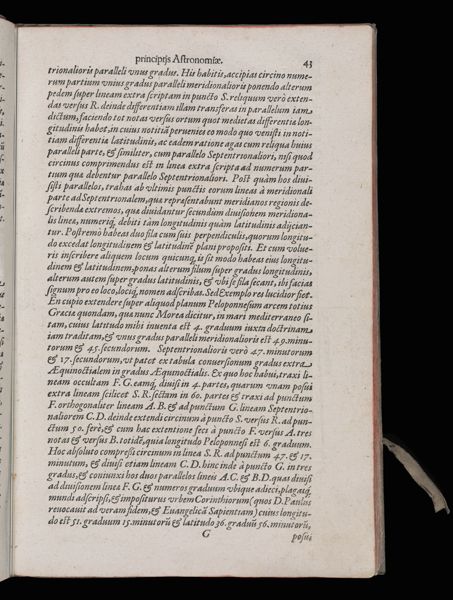 principijs Astronomiæ. 43
trionalioris paralleli vnus gradus. His habitis, accipias circino nume-
rum partium vnius gradus paralleli meridionalioris ponendo alterum
pedem super lineam extra scriptam in puncto S. reliquum verò exten-
das versus R. deinde differentiam illam transferas in parallelum iam
dictum, faciendo tot notas versus ortum quot medietas differentiæ lon-
gitudinis habet, in cuius notitiā peruenies eo modo quo venisti in noti-
tiam differentiæ latitudinis, ac eadem ratione agas cum reliqua huius
paralleli parte, & similiter, cum parallelo Septentrionaliori, nisi quod
circinus comprimendus est in linea extra scripta ad numerum par-
tium quæ debentur parallelo Septentrionaliori. Post quàm hos diui-
sisti parallelos, trahas ab vltimis punctis eorum lineas à meridionali
parte ad Septentrionalem, quæ repræsentabunt meridianos regionis de-
scribendæ extremos, quæ diuidantur secundùm diuisionem meridiona-
lis lineæ, numeriq́; debiti tàm longitudinis quàm latitudinis adijcian-
tur. Postremò habeas duo fila cum suis perpendiculis, quorum longitu-
do excedat longitudinem & latitudinē plani propositi. Et cum volue-
ris inscribere aliquem locum quicunq; is sit modo habeas eius longitu-
dinem & latitudinem, ponas alterum filum super gradus longitudinis,
alterum autem super gradus latitudinis, & vbi se fila secant, ibi facias
signum pro eo loco, lociq́; nomen adscribas. Sed Exemplo res lucidior fiet.
En cupio extendere super aliquod planum Peloponnesum arcem totius
Græciæ quondam, quæ nunc Morea dicitur, in mari mediterraneo si-
tam, cuius latitudo mihi inuenta est 4. graduum iuxta doctrinam
iam traditam, & vnus gradus paralleli meridionalioris est 49. minu-
torum & 45. secundorum. Septentrionalioris verò 47. minutorum
& 17. secundorum, vt patet ex tabula conuersionum gradus extra
Æquinoctialem in gradus Æquinoctialis. Ex quo hoc habui, traxi li-
neam occultam F. G. eamq́; diuisi in 4. partes, quarum vnam posui
extra lineam scilicet S. R. sectam in 60. partes & traxi ad punctum
F. orthogonaliter lineam A. B. & ad punctum G. lineam Septentrio-
naliorem C. D. deinde extendi circinum à puncto S. versus R. ad pun-
ctum 50. ferè, & cum hac extentione feci à puncto F. versus A. tres
notas & versus B. totidē, quia longitudo Peloponnesi est 6. graduum.
Hoc absoluto compressi circinum in linea S. R. ad punctum 47. & 17.
minutum, & diuisi etiam lineam C. D. hinc inde à puncto G. in tres
gradus, & coniunxi hos duos parallelos lineis A. C. & B. D. quas diuisi
ad diuisionem lineæ F. G. & numeros graduum vbique adieci, plagasq́;
mundi adscripsi, & impositurus vrbem Corinthiorum (quos D. Paulus
reuocauit ad veram fidem, & Euangelicā Sapientiam) cuius longitu-
do est 51. graduum 15. minutorū & latitudo 36. graduū 56. minutorū,
G posui